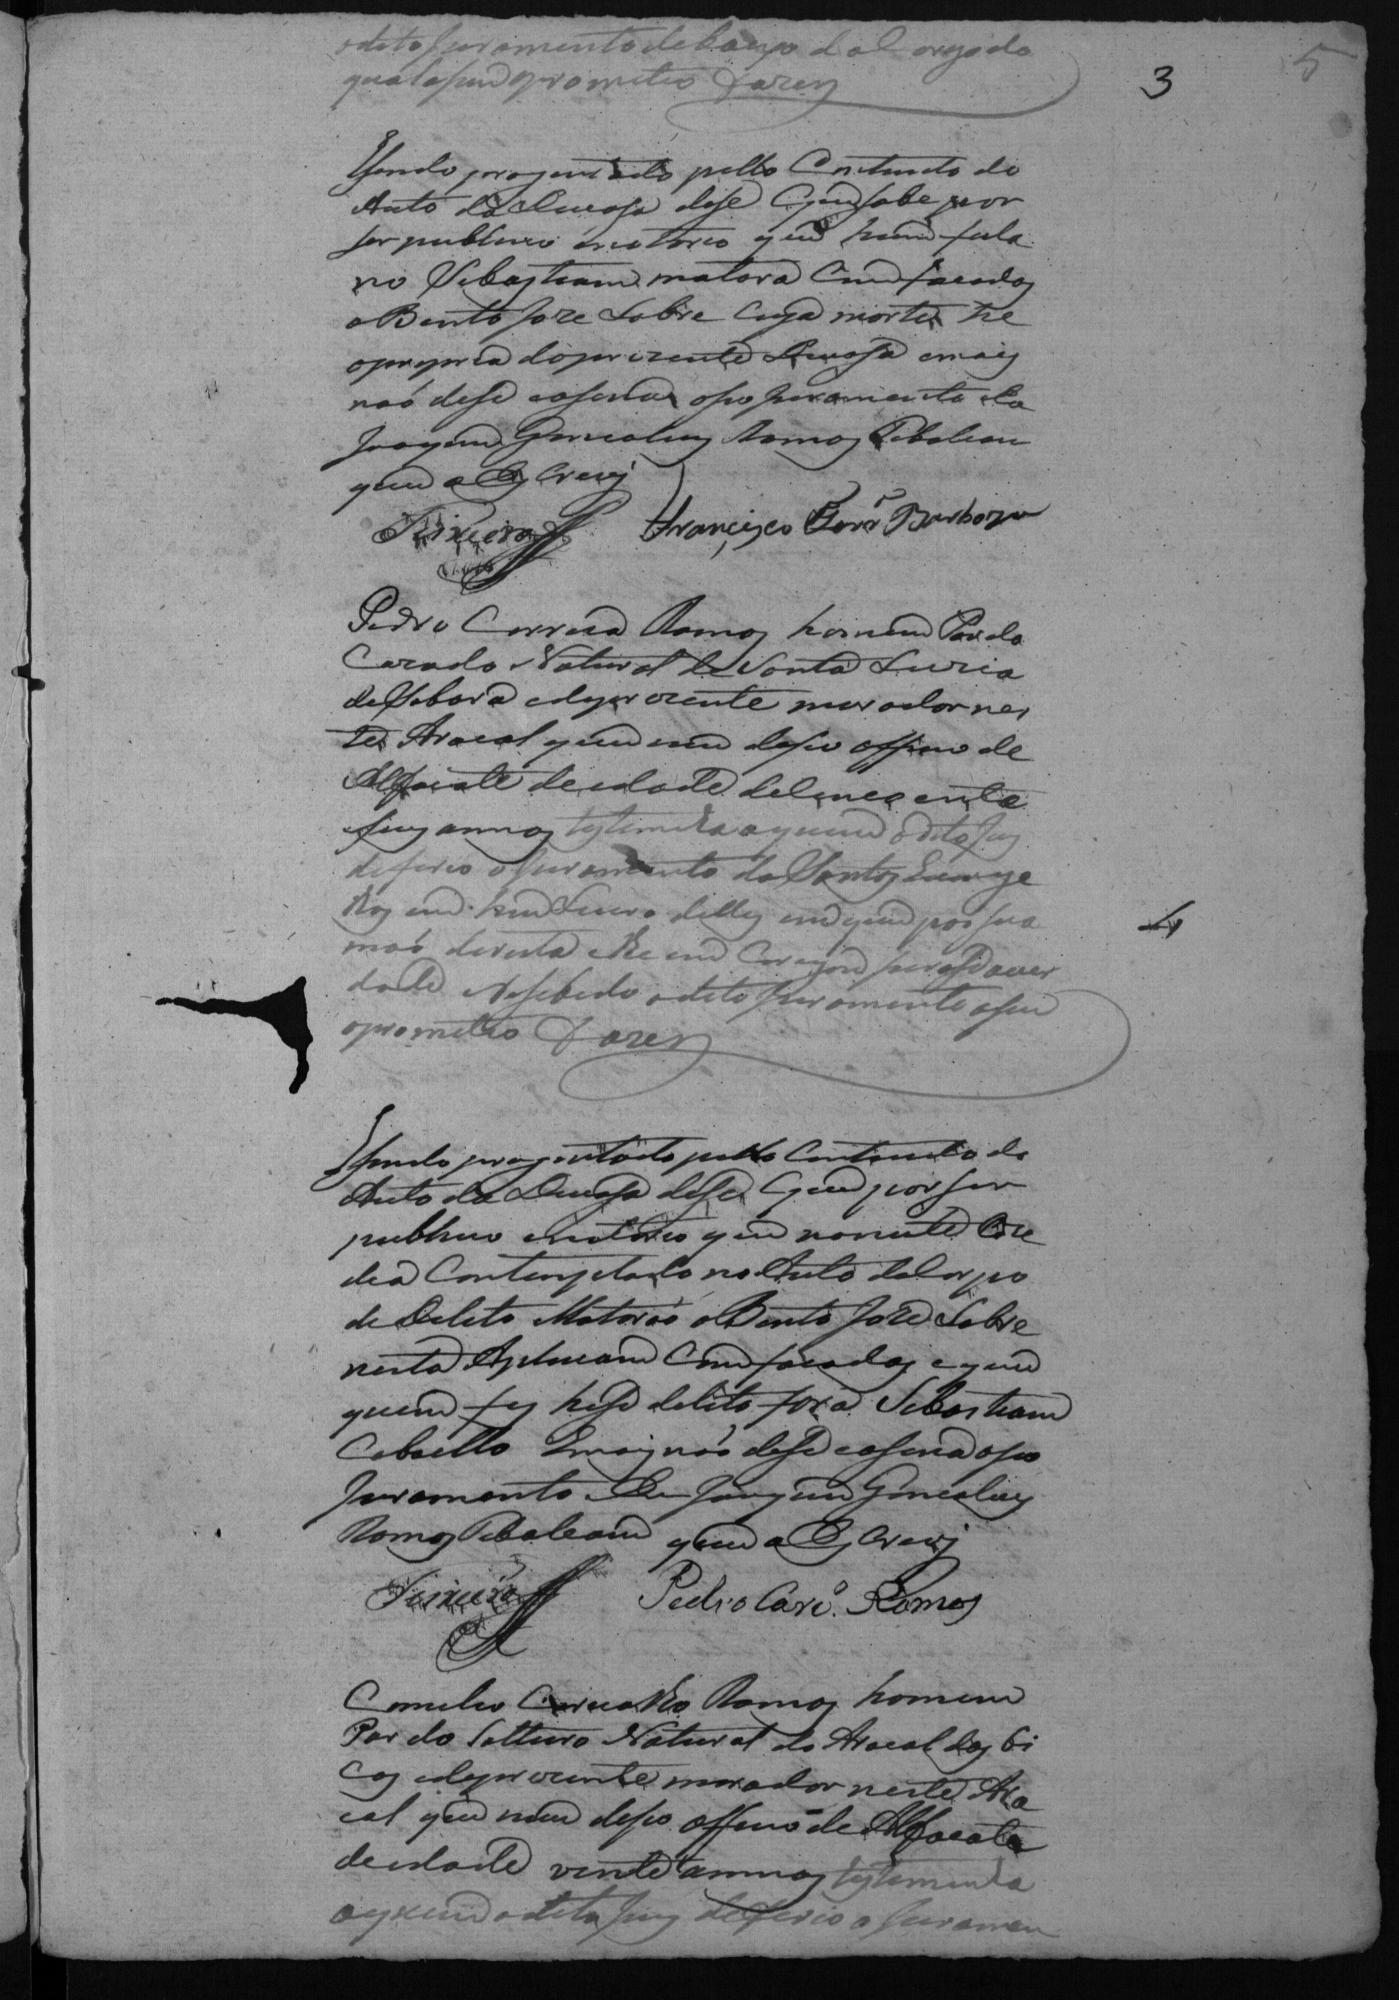 odito juramento debaxo do Cargo do
qual asim oprometeo fazer
3
5
Esendo preguntado pello Contiudo do
Auto da Devasa dise Que sabe por
ser publico enotorio que hum fula
no Sebastiam matara Com facadas
a Bento Joze Sobre Cuja morte he
a propria do prezente Devasa emais
naõ dise easina o seo juramento Eu
Joaquim Goncalves Ramos
que a Escrevy
Teixeira
Francisco Barboza
Pedro Correia Ramos homem Pardo
Cazado Natural de Santa Luzia
de Sabara edeprezente morador nes
te Araeal que vive deseo officio de
Alfaiate de idade de sincoenta
seis annos testemunha aquem odito Juis
deferio o juramento dos Santos Evange
lhos em hum Livro delles em que pos sua
maõ direita elhe em Caregou jurase aver
dade eResebido odito juramento asim
oprometeo fazer
4
Esendo preguntado pello Contiudo do
Auto da Devasa dise Que por ser
publico enotorio que nanoite Eou
dia Contemplado no Auto de Corpo
de Delito Mataraõ a Bento Joze Sobre
nesta Aplicacam Com facadas eque
quem fes hese delito fora Sebastiam
Cabello Emais naõ dise easina oseo
Juramento Eu Joaquim Goncalves
Ramos que a Escrevy
Teixeira
Pedro Carº. Ramos
Cornelio Carvalho Ramos homem
Pardo Solteiro Natural do Araeal dos Bi
cos edeprezente morador neste Ara
eal que vive deseo officio de Alfaeate
de idade vinte annos testemunha
aquem odito Juis deferio o Juramen